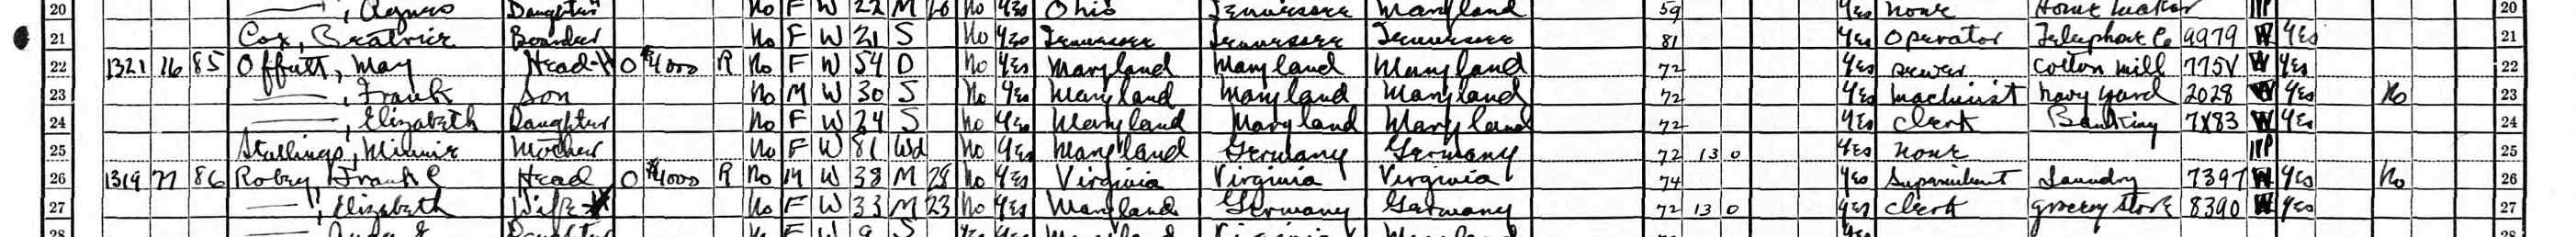 20 ——, Agnes Daughter No F W 22 M No Yes Ohio Tennessee Maryland 59 Yes none Home maker 20
21 Cox, Beatrice Boarder No F W 21 S No Yes Tennessee Tennessee Tennessee 81 Yes Operator Telephone Co 9979 W Yes 21
22 1321 76 85 Offutt, May Head-H O $4000 R No F W 54 D No Yes Maryland Maryland Maryland 72 Yes sewer cotton mill 775V W Yes 22
23 ——, Frank Son No M W 30 S No Yes Maryland Maryland Maryland 72 Yes machinist navy yard 2028 W Yes No 23
24 ——, Elizabeth Daughter No F W 24 S No Yes Maryland Maryland Maryland 72 Yes Clerk Banking 7X83 W Yes 24
25 Stallings, Minnie Mother No F W 81 Wd No Yes Maryland Germany Germany 72 13 0 Yes none 25
26 1319 77 86 Robey, Frank E Head O $4000 R No M W 38 M 28 No Yes Virginia Virginia Virginia 74 Yes Laundry 7397 W Yes No 26
27 ——, Elizabeth Wife-H No F W 33 M 23 No Yes Maryland Germany Germany 72 13 0 Yes clerk grocery store 8390 W Yes 27
28 Daughter F W 9 S Virginia Maryland 28